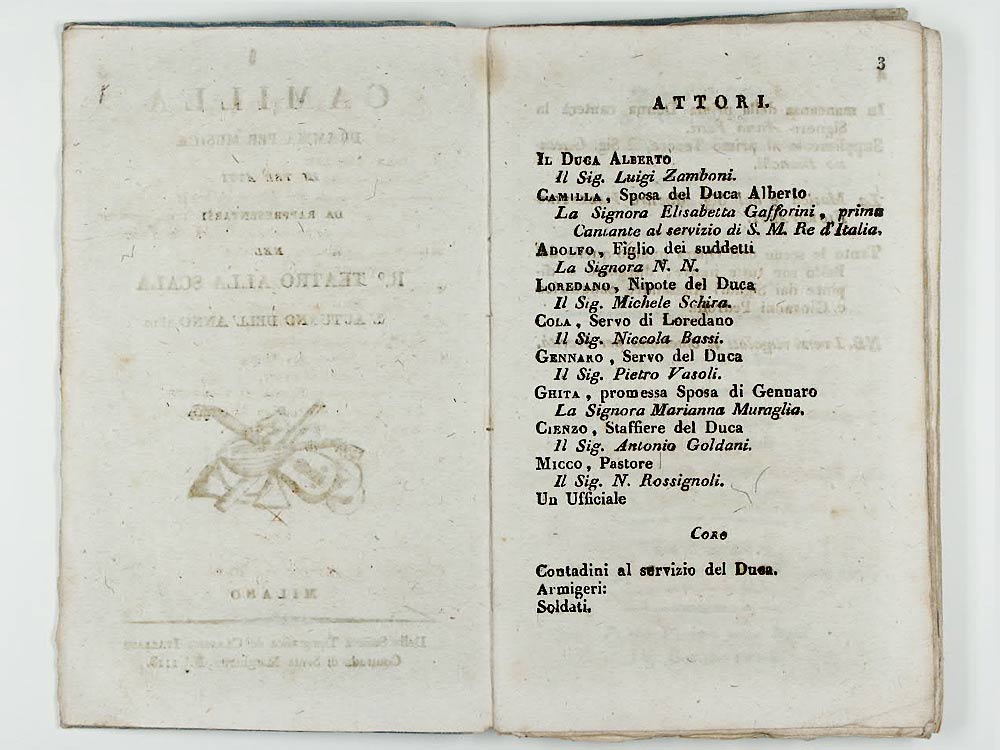 CAMILLA
DRAMMA PER MUSICA
IN TRE ATTI
DA RAPPRESENTARSI
NEL
R.º TEATRO ALLA SCALA
L'AUTUNNO DELL'ANNO
MILANO
3
ATTORI.
Il Duca Alberto
Il Sig. Luigi Zamboni.
Camilla, Sposa del Duca Alberto
La Signora Elisabetta Gafforini, prima
Cantante al servizio di S. M. Re d'Italia.
Adolfo, Figlio dei suddetti
La Signora N. N.
Loredano, Nipote del Duca
Il Sig. Michele Schira.
Cola, Servo di Loredano
Il Sig. Niccola Bassi.
Gennaro, Servo del Duca
Il Sig. Pietro Vasoli.
Ghita, promessa Sposa di Gennaro
La Signora Marianna Muraglia.
Cienzo, Staffiere del Duca
Il Sig. Antonio Goldani.
Micco, Pastore
Il Sig. N. Rossignoli.
Un Ufficiale
Coro
Contadini al servizio del Duca.
Armigeri:
Soldati.